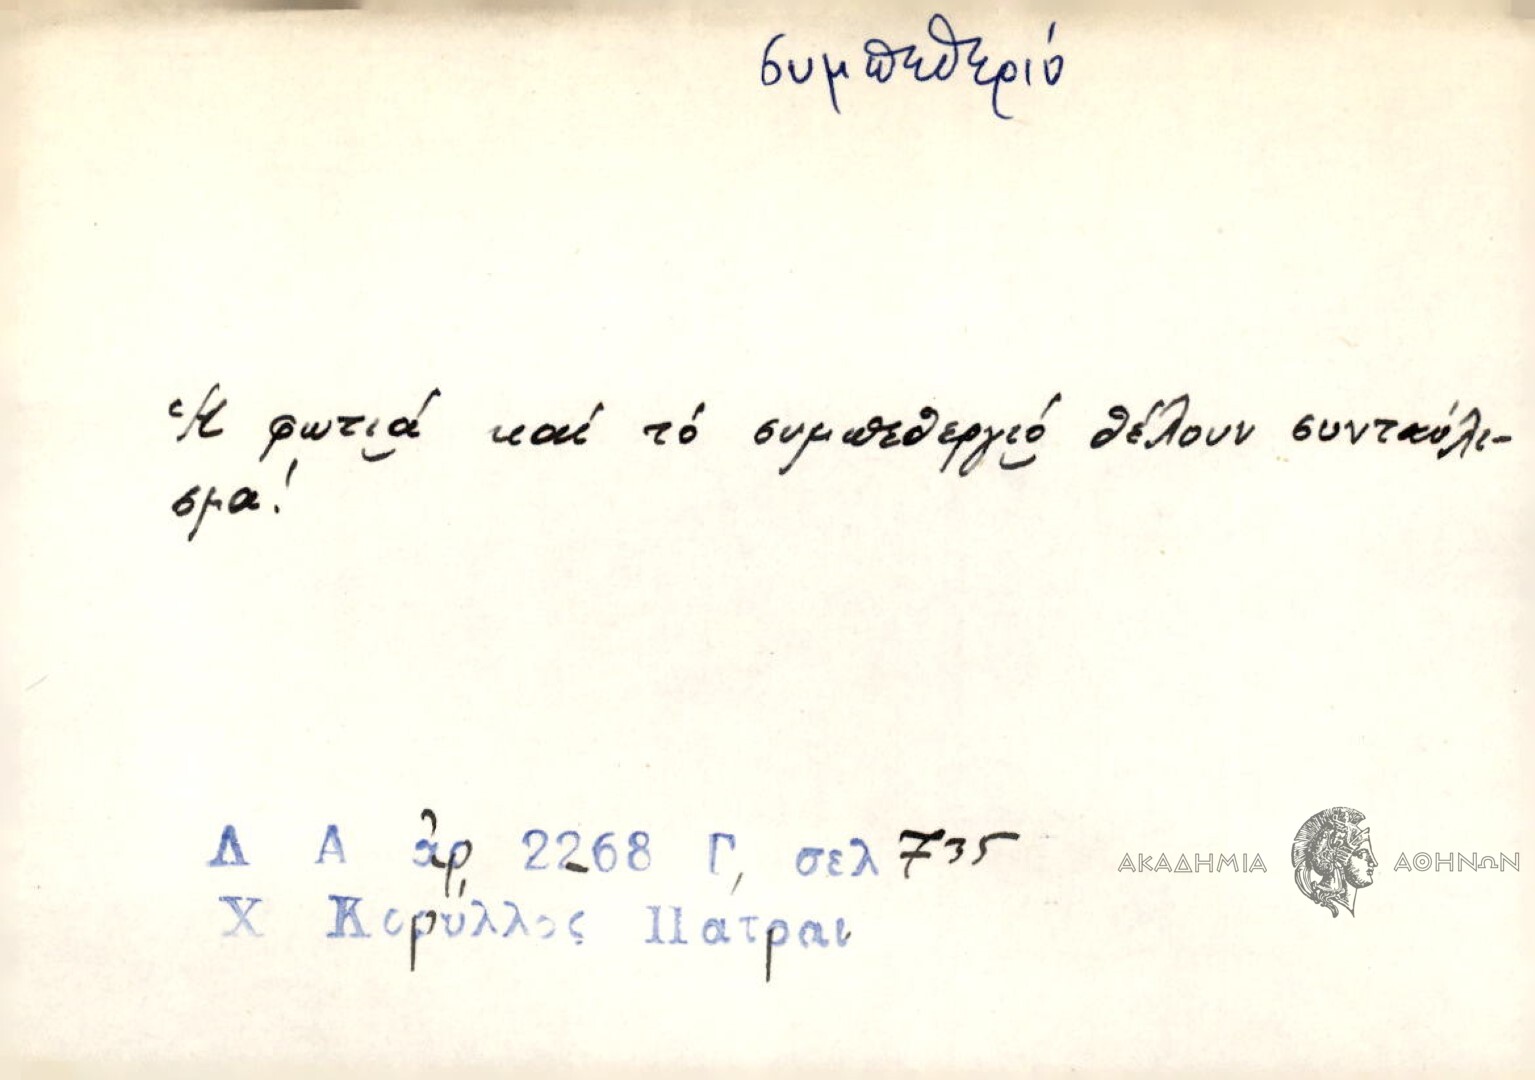 συμπεθεριό
Ἡ φωτιά καί τό συμπεθεργιό θέλουν συνταύλι-
σμα!
Λ Α ἀρ 2268 Γ, σελ 735
Χ Κορύλλος Πάτραι
ΑΚΑΔΗΜΙΑ ΑΘΗΝΩΝ